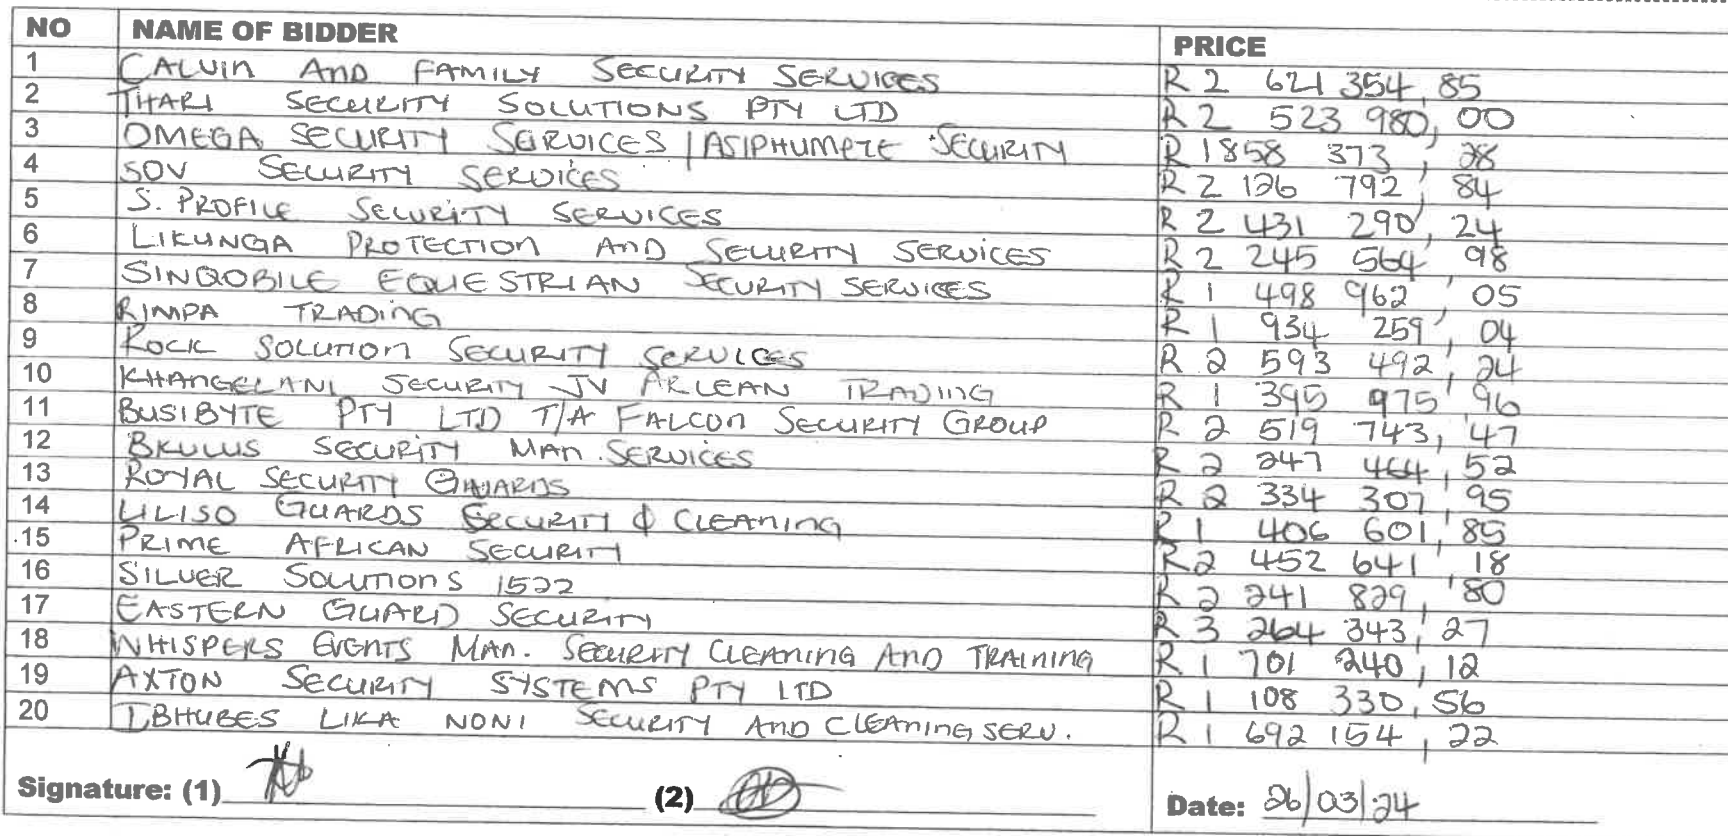 NO NAME OF BIDDER PRICE
1 CALVIN AND FAMILY SECURITY SERVICES R 2 621 354,85
2 THARI SECURITY SOLUTIONS PTY LTD R 2 523 980,00
3 OMEGA SECURITY SERVICES / ASIPHUMELE SECURITY R 1858 373,28
4 SOV SECURITY SERVICES R 2 126 792,84
5 S. PROFILE SECURITY SERVICES R 2 431 290,24
6 LIKUNGA PROTECTION AND SECURITY SERVICES R 2 245 564,98
7 SINQOBILE EQUESTRIAN SECURITY SERVICES R 1 498 962,05
8 RIMPA TRADING R 1 934 259,04
9 ROCK SOLUTION SECURITY SERVICES R 2 593 492,24
10 KHANGELANI SECURITY JV ARLEAN TRADING R 1 395 975,96
11 BUSIBYTE PTY LTD T/A FALCON SECURITY GROUP R 2 519 743,47
12 BKULUS SECURITY MAN. SERVICES R 2 247 464,52
13 ROYAL SECURITY GUARDS R 2 334 307,95
14 ULISO GUARDS SECURITY & CLEANING R 1 406 601,85
15 PRIME AFRICAN SECURITY R2 452 641,18
16 SILVER SOLUTIONS 1522 R 2 241 829,80
17 EASTERN GUARD SECURITY R 3 264 343,27
18 WHISPERS EVENTS MAN. SECURITY CLEANING AND TRAINING R 1 701 240,12
19 AXTON SECURITY SYSTEMS PTY LTD R 1 108 330,56
20 IBHUBES LIKA NONI SECURITY AND CLEANING SERV. R 1 692 154,22
Signature: (1) (2) Date: 26/03/24